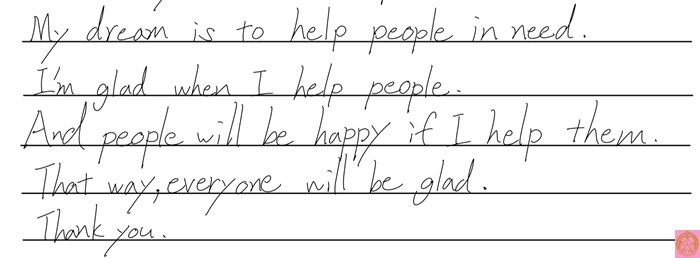 My dream is to help people in need.
I'm glad when I help people.
And people will be happy if I help them.
That way, everyone will be glad.
Thank you.